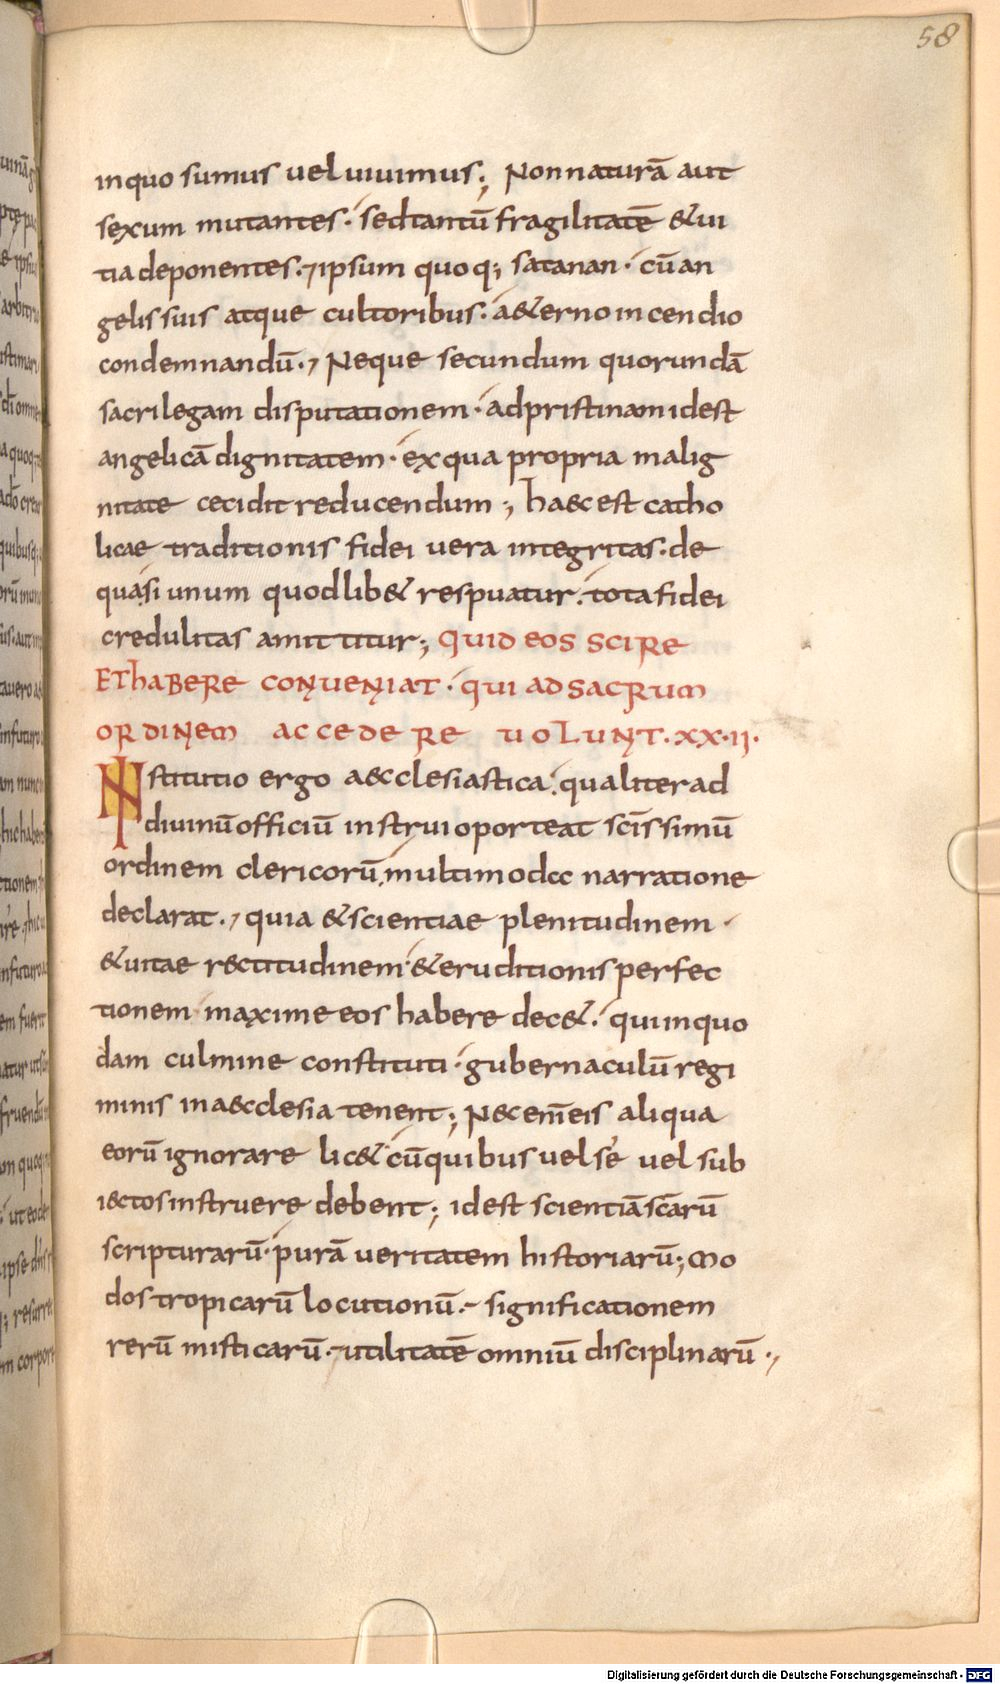 58
inquo sumus vel uiuimus; Non naturā aut
sexum mutantes. sed tantū fragilitatē & ui
tia deponentes. 7 ipsum quoq; satanan. cū an
gelis suis atque cultoribus. a&erno incendio
condemnandū., Neque secundum quorundā
sacrilegam disputationem. ad pristinam idest
angelicā dignitatem. ex qua propria malig
nitate cecidit reducendum; haec est catho
licae traditionis fidei vera integritas. de
quasi unum quodlib& respuatur. tota fidei
credulitas amittitur; QUID EOS SCIRE
ET hABERE CONVENIAT. QUI AD SACRUM
ORDINEM ACCEDERE VOLUNT. XX.II.
INstitutio ergo aecclesiastica. qualiter ad
diuinū officiū instrui oporteat scīssimū
ordinem clericorū, multimodae narratione
declarat., quia & scientiae plenitudinem.
& uitae rectitudinem. & eruditionis perfec
tionem maxime eos habere dec&. qui in quo
dam culmine constituti. gubernaculū regi
minis in aecclesia tenent; Nec em̄ eis aliqua
eorū ignorare lic& cū quibus uel se uel sub
iectos instruere debent; idest scientiā scārū
scripturarū. purā veritatem historiarū; Mo
dos tropicarū locutionū. significationem
rerū misticarū. utilitatē omniū disciplinarū.,
Digitalisierung gefördert durch die Deutsche Forschungsgemeinschaft - DFG